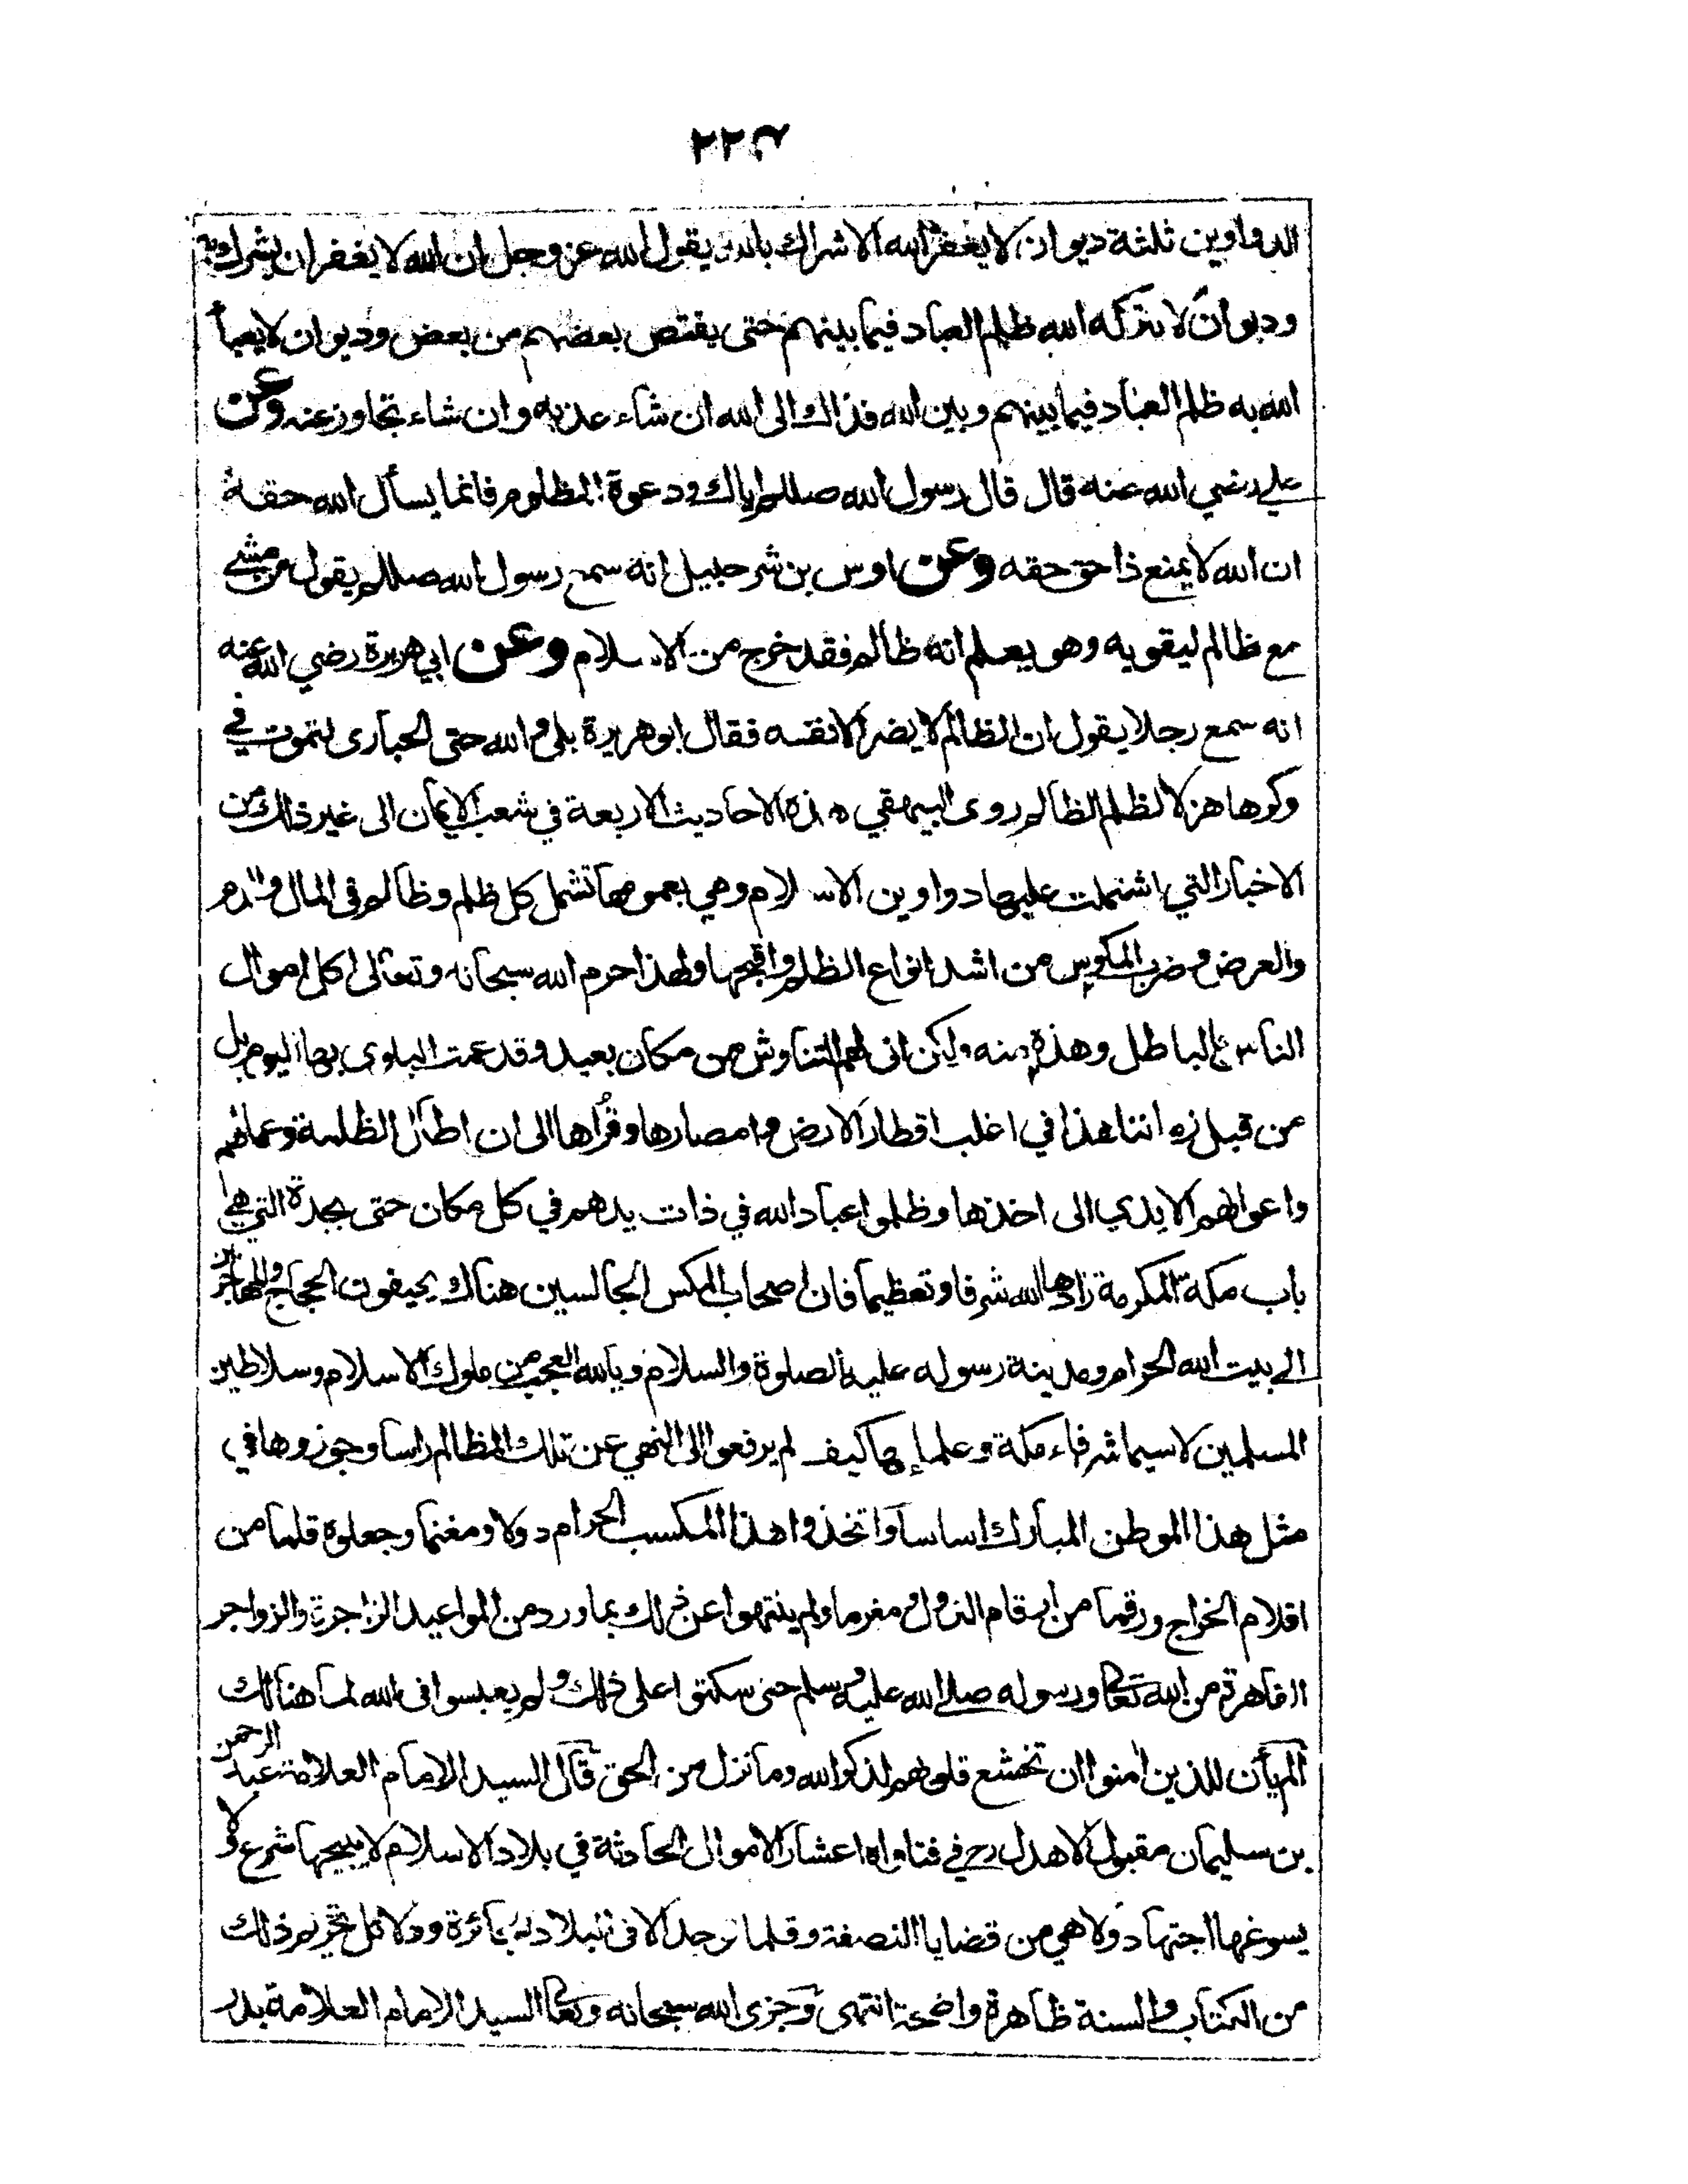 ٢٢٣
الدواوين ثلثة ديوان لا يغفر الله الاشراك بالله يقول الله عز وجل ان الله لا يغفر ان يشرك به
وديوان لا يتركه الله ظلم العباد فيما بينهم حتى يقتص بعضهم من بعض وديوان لا يعبأ
الله به ظلم العباد فيما بينهم وبين الله فذاك الى الله ان شاء عذبه وان شاء تجاوز عنه وعن
علي رضي الله عنه قال قال رسول الله صللم اياك ودعوة المظلوم فانما يسأل الله حقه
ان الله لا يمنع ذا حق حقه وعن اوس بن شرحبيل انه سمع رسول الله صللم يقول من مشى
مع ظالم ليقويه وهو يعلم انه ظالم فقد خرج من الاسلام وعن ابي هريرة رضي الله عنه
انه سمع رجلا يقول ان الظالم لا يضر الا نفسه فقال ابو هريرة بلى والله حتى الحبارى لتموت في
وكرها هزلا لظلم الظالم روى البيهقي هذه الاحاديث الاربعة في شعب الايمان الى غير ذلك من
الاخبار التي اشتملت عليها دواوين الاسلام وهي بعمومها تشمل كل ظلم وظالم في المال والدم
والعرض وضرب المكوس من اشد انواع الظلم واقبحها ولهذا حرم الله سبحانه وتعالى اكل اموال
الناس بالباطل وهذه منه ولكن انى لهم التناوش من مكان بعيد وقد عمت البلوى بها اليوم بل
من قبل زماننا هذا في اغلب اقطار الارض وامصارها وقراها الى ان اطال الظلمة وعمالهم
واعوانهم الايدي الى اخذها وظلموا عباد الله في ذات يدهم في كل مكان حتى بجدة التي هي
باب مكة المكرمة زادها الله شرفا وتعظيما فان اصحاب المكس الجالسين هناك يحيفون الحجاج والمهاجرين
الى بيت الله الحرام ومدينة رسوله عليه الصلوة والسلام ويالله العجب من ملوك الاسلام وسلاطين
المسلمين لاسيما شرفاء مكة وعلمائها كيف لم يرفعوا الى النهي عن تلك المظالم راسا وجوزوها في
مثل هذا الموطن المبارك اساسا واتخذوا هذا المكسب الحرام دولا ومغنما وجعلوه قلما من
اقلام الخراج ورقما من ارقام النزول ومغرما ولم ينتهوا عن ذلك بما ورد من المواعيد الزاجرة والزواجر
القاهرة من الله تعالى ورسوله صلى الله عليه وسلم حتى سكتوا على ذلك ولم يعبسوا في الله لما هنالك
الم يأن للذين امنوا ان تخشع قلوبهم لذكر الله وما نزل من الحق قال السيد الامام العلامة عبد الرحمن
بن سليمان مقبول الاهدل رح في فتاواه اعشار الاموال الحادثة في بلاد الاسلام لا يبيحها شرع ولا
يسوغها اجتهاد ولا هي من قضايا النصفة وقلما توجد الا في البلاد ودلائل تحريم ذلك
من الكتاب والسنة ظاهرة واضحة انتهى وجزى الله سبحانه وتعالى السيد الامام العلامة بدر